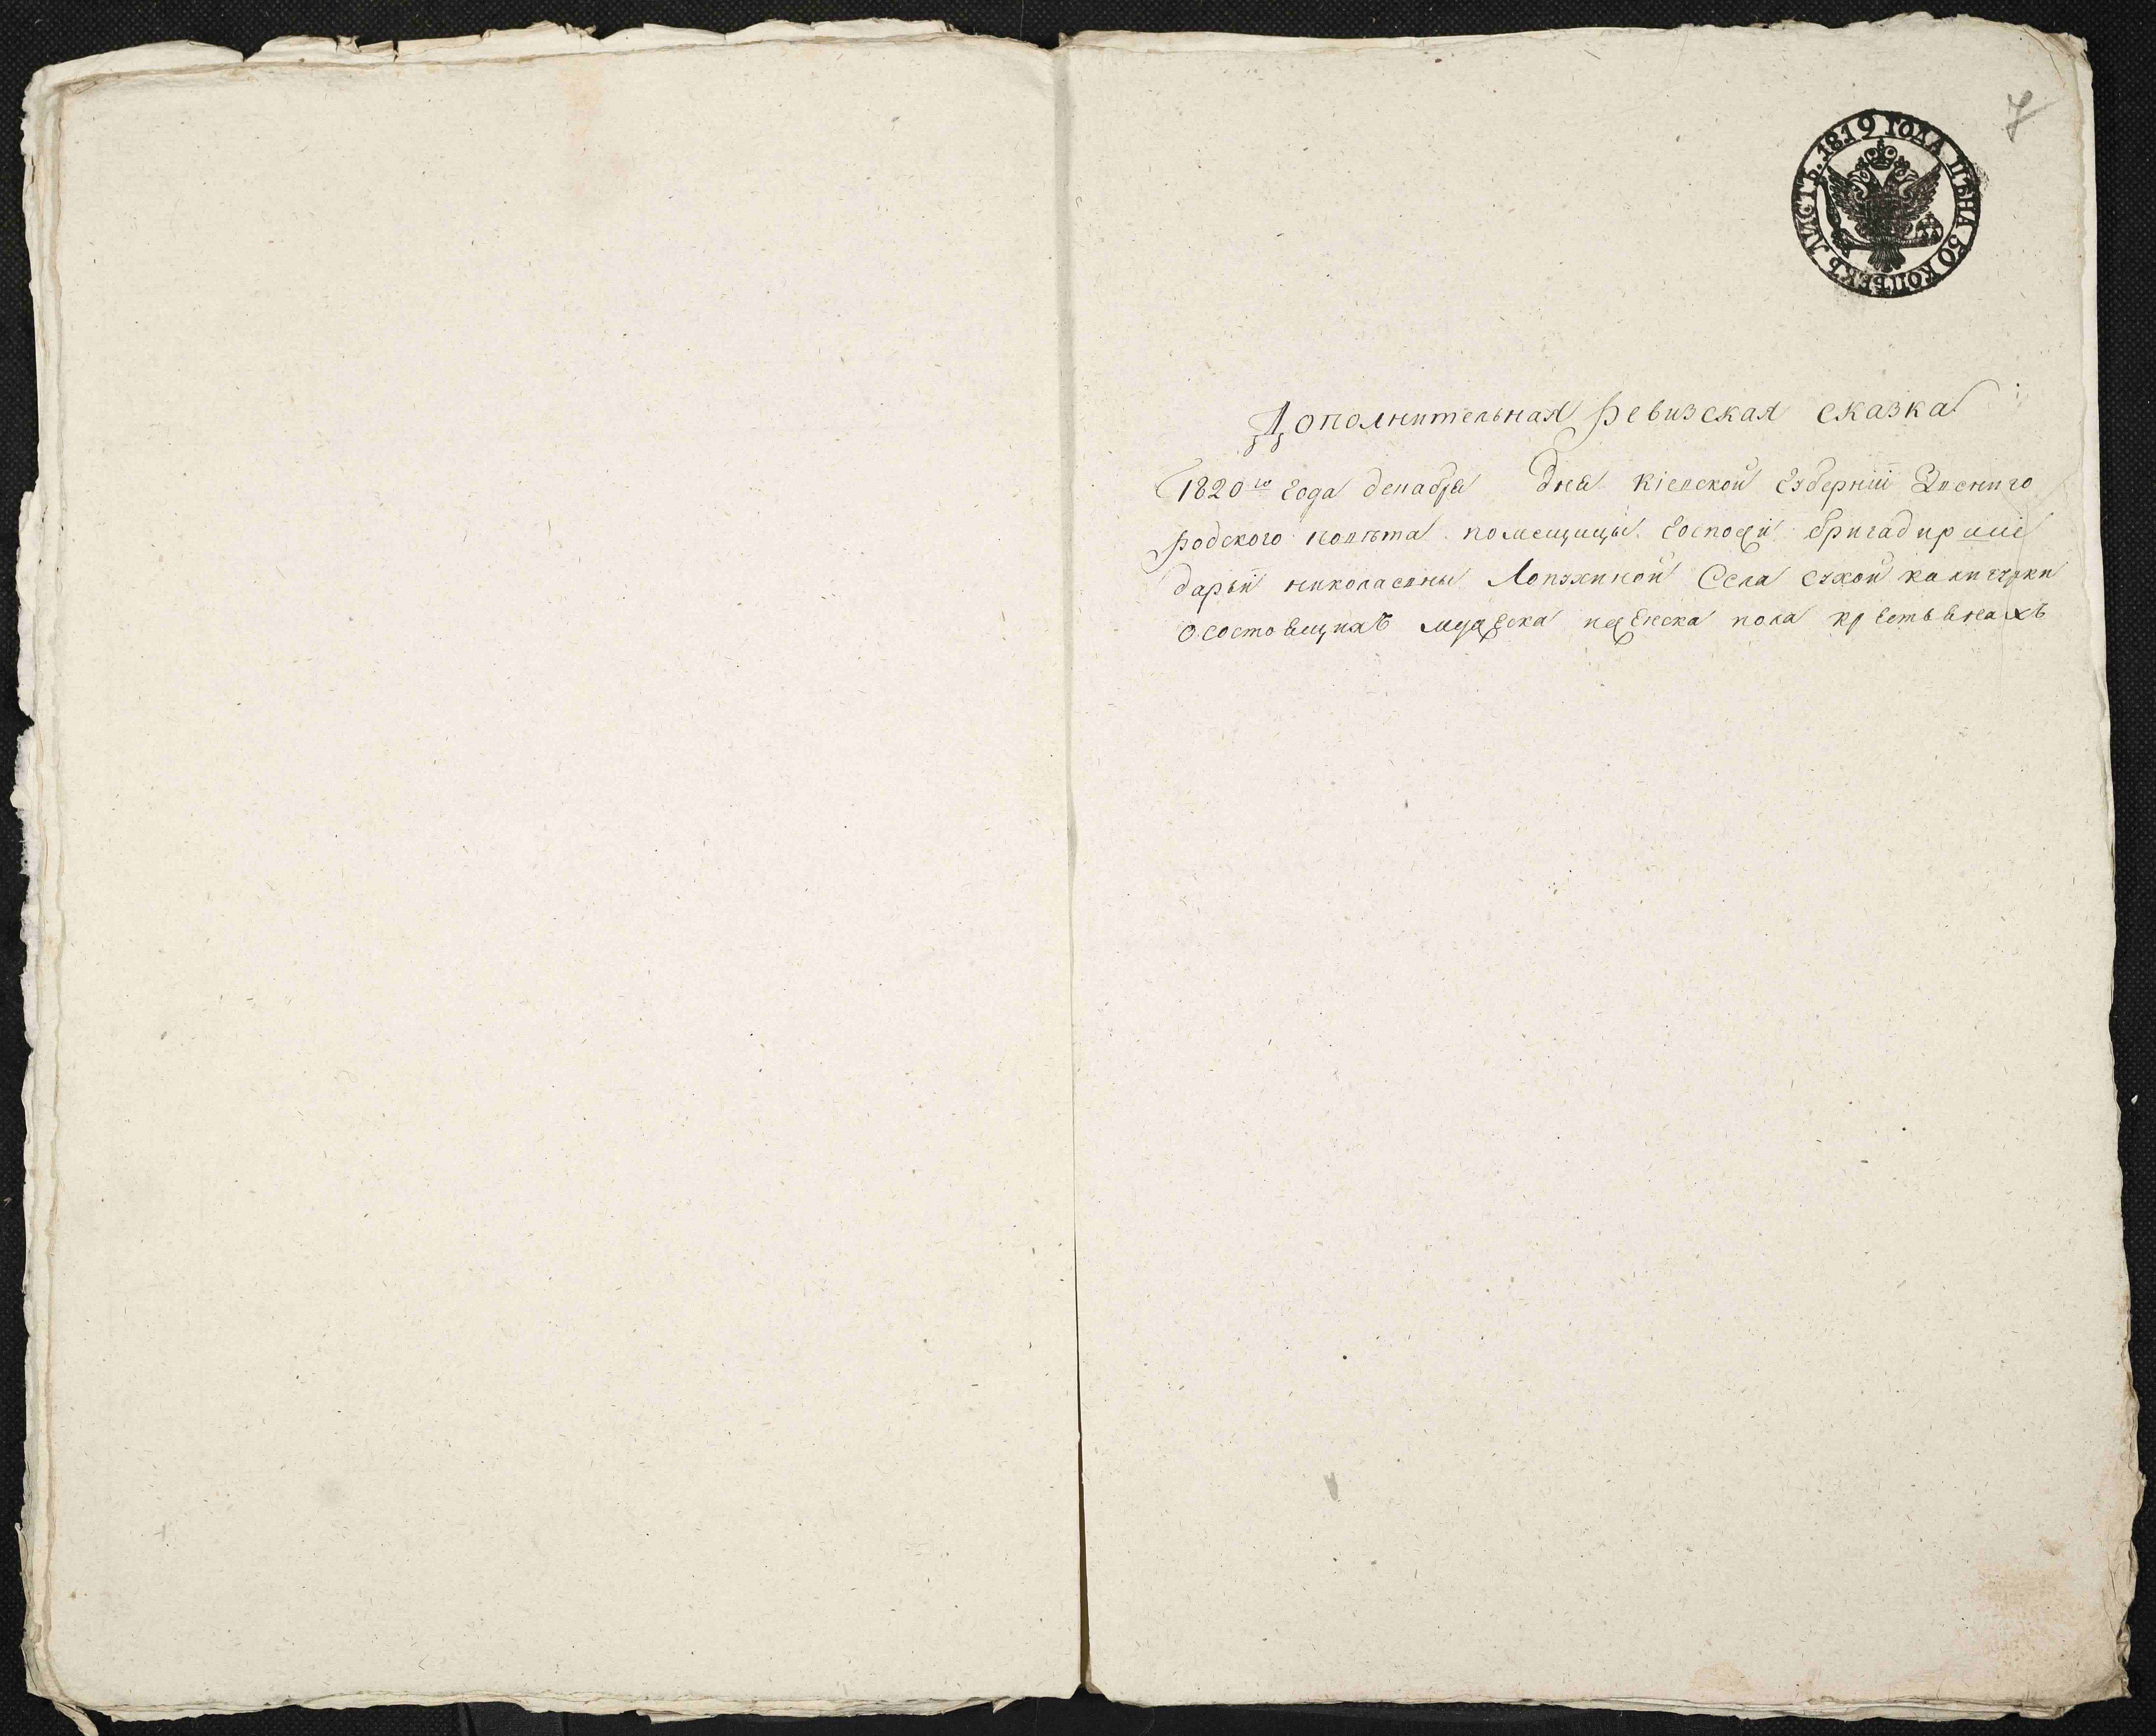 7
ЛИСТЪ. 1819 ГОДА ЦѢНА 50 КОПѢЕКЪ
Дополнительная Ревизская сказка
1820го года декабря дня Кіевской губерніи Звениго
родского повѣта помещицы Госпожи бригадирши
дарьи николаевны Лопухиной Села сухой калигурки
О состоящихъ мужеска и женска пола крестьянахъ